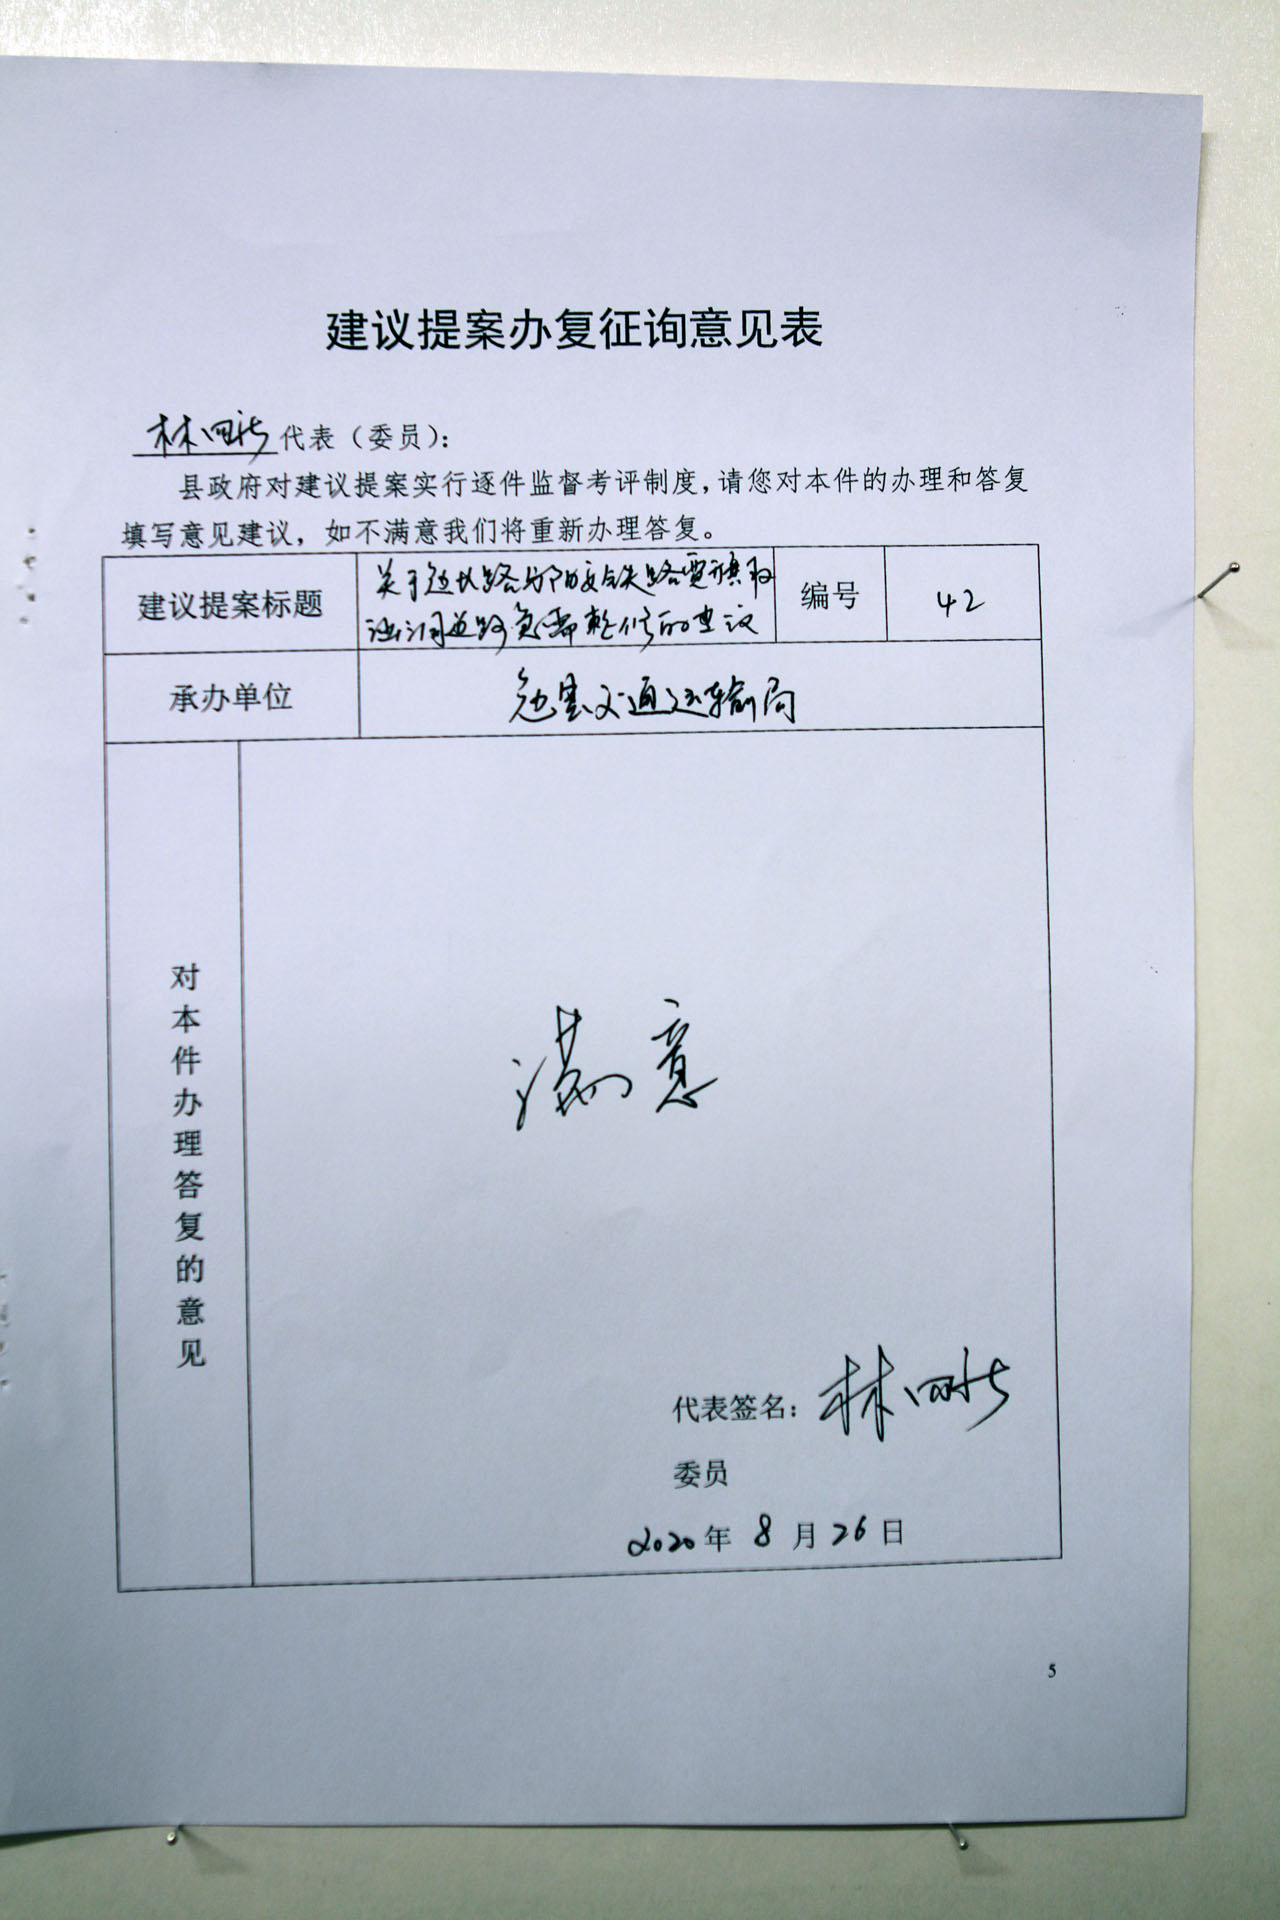 建议提案办复征询意见表
林 代表（委员）：
县政府对建议提案实行逐件监督考评制度，请您对本件的办理和答复
填写意见建议，如不满意我们将重新办理答复。
建议提案标题
关于 路与 铁路
道路急需整修的建议
编号
42
承办单位
勉县交通运输局
对本件办理答复的意见
满意
代表签名：林
委员
2020年8月26日
5